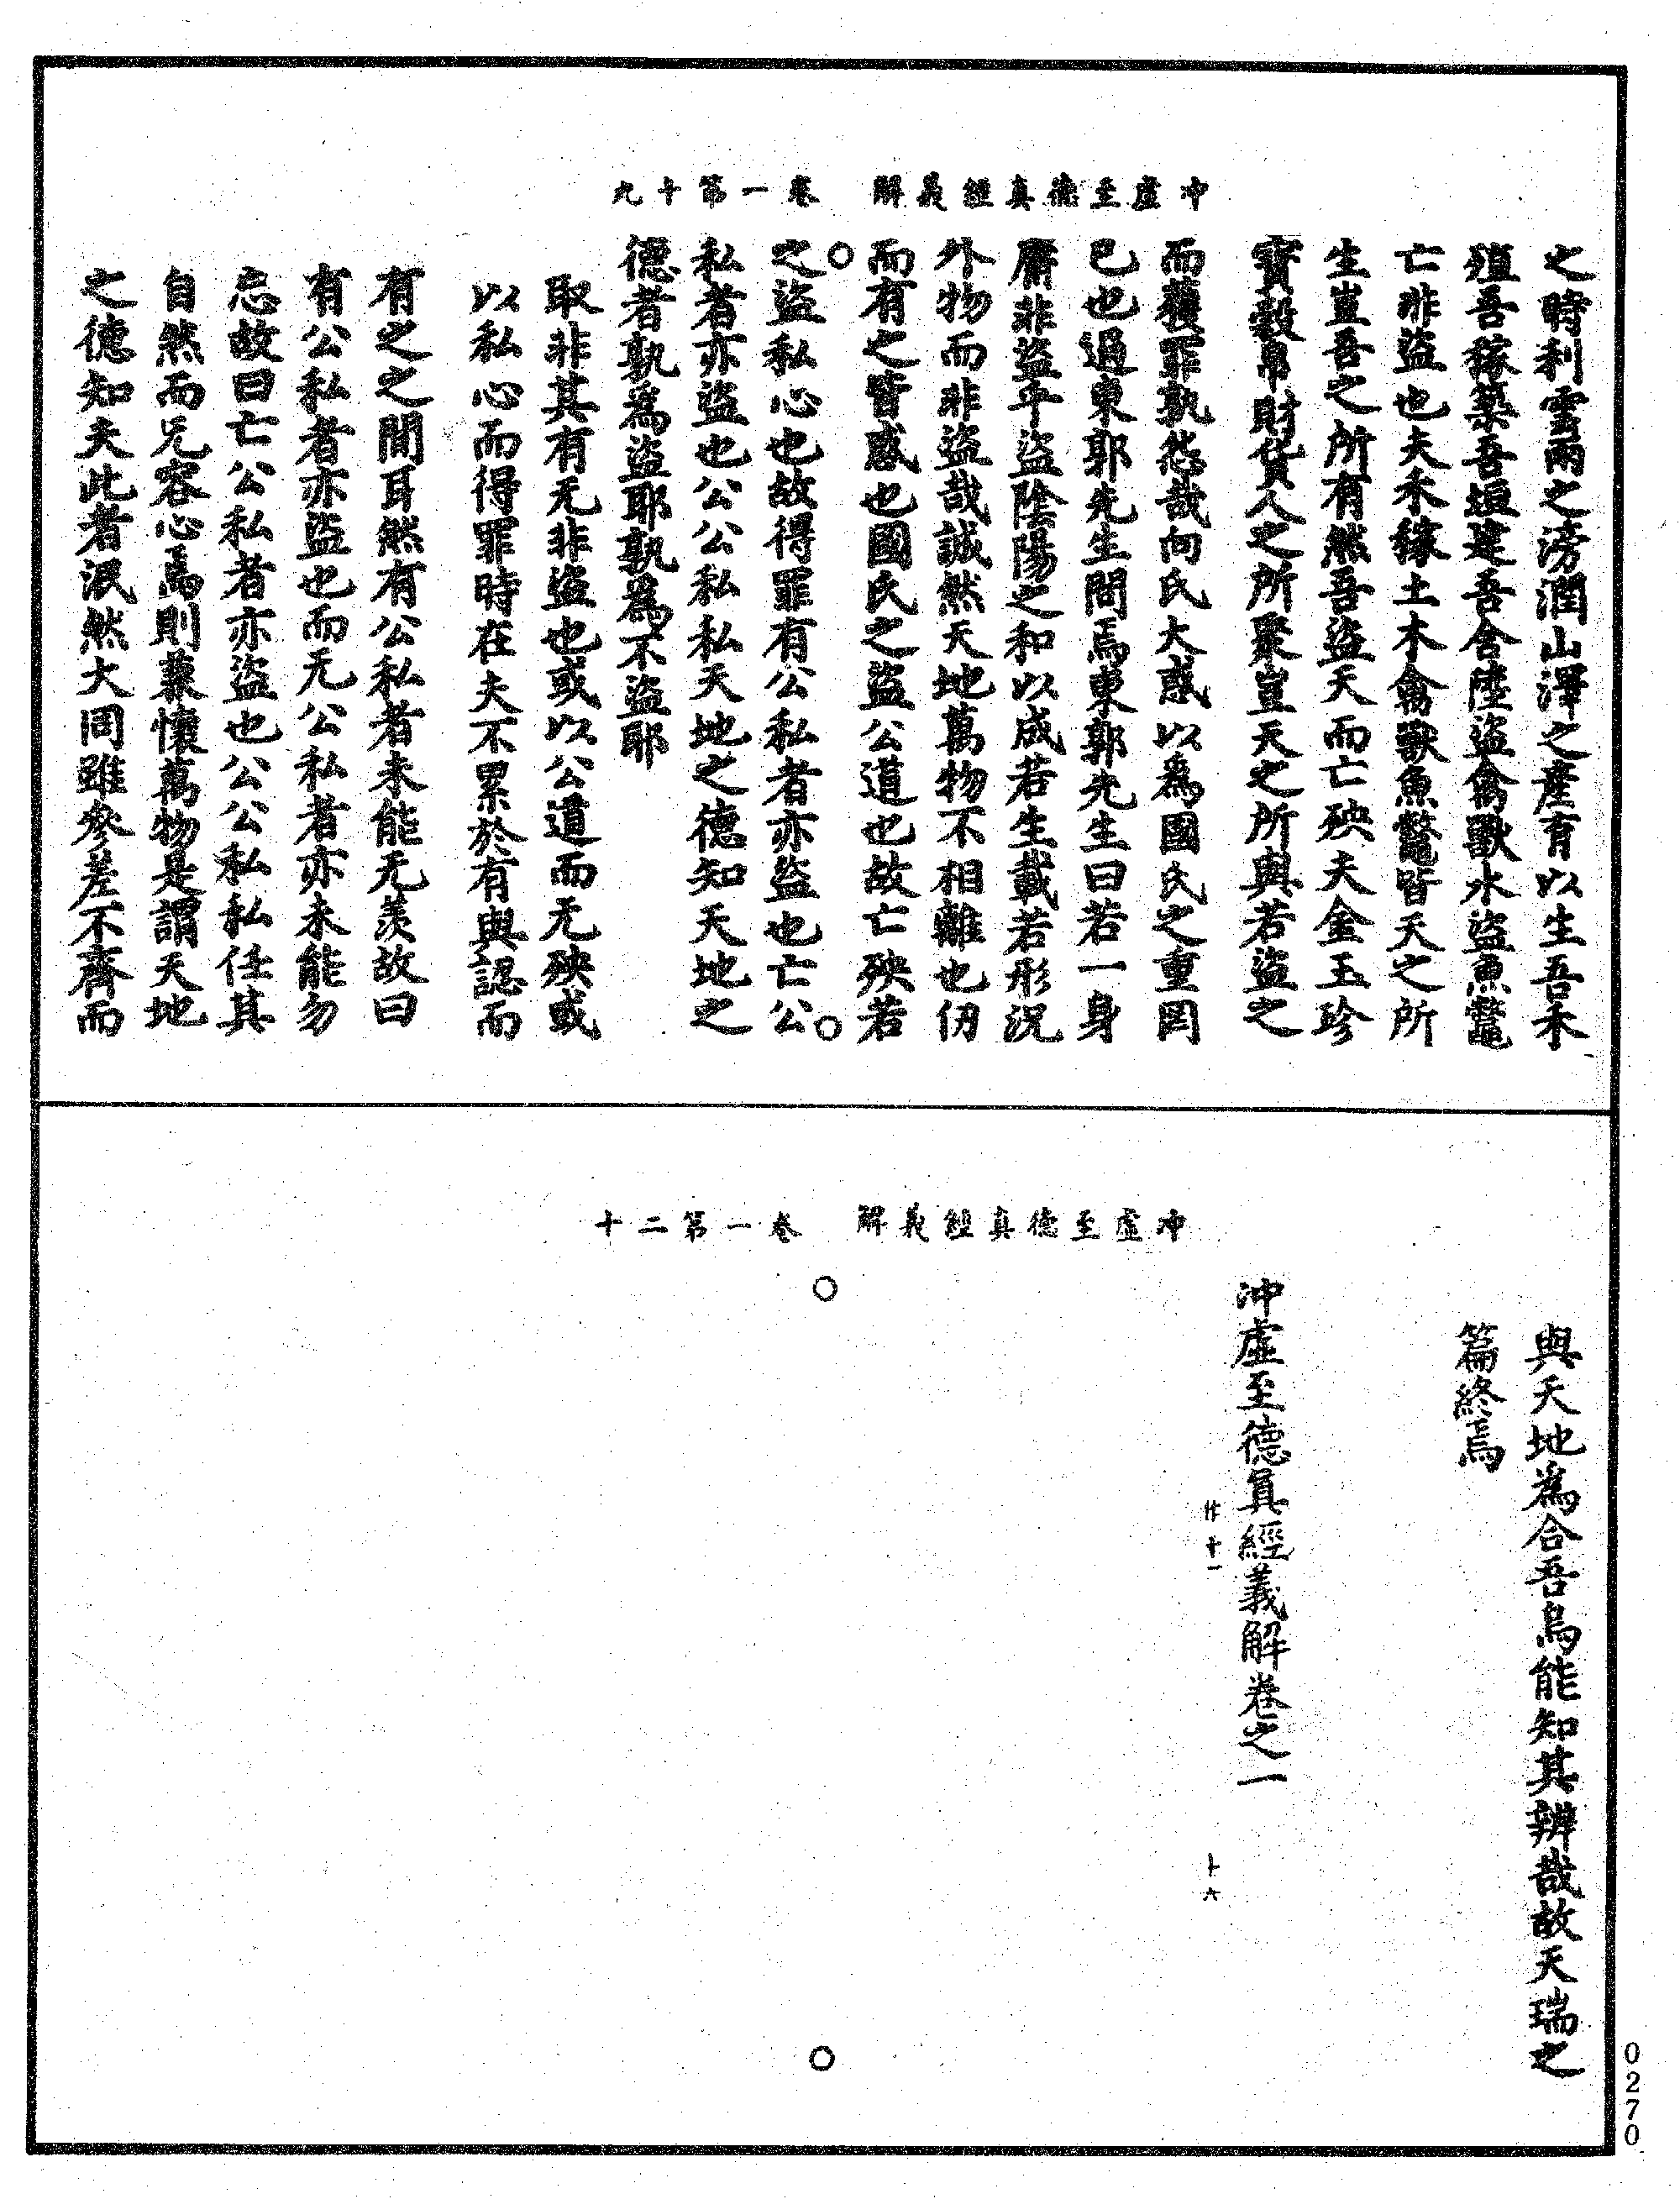 冲虛至德真經義解　卷一第十九
之時利雲雨之滂潤山澤之産育以生吾禾
殖吾稼築吾垣建吾舍陸盜禽獸水盜魚鼈
亡非盜也夫禾稼土木禽獸魚鼈皆天之所
生豈吾之所有然吾盜天而亡殃夫金玉珍
寶穀帛財貨人之所聚豈天之所與若盜之
而獲罪孰怨哉向氏大惑以爲國氏之重罔
已也過東郭先生問焉東郭先生曰若一身
庸非盜乎盜陰陽之和以成若生載若形況
外物而非盜哉誠然天地萬物不相離也仞
而有之皆惑也國氏之盜公道也故亡殃若
之盜私心也故得罪有公私者亦盜也亡公
私者亦盜也公公私私天地之德知天地之
德者孰爲盜耶孰爲不盜耶
取非其有无非盜也或以公道而无殃或
以私心而得罪時在夫不累於有與認而
有之之間耳然有公私者未能无羨故曰
有公私者亦盜也而无公私者亦未能勿
忘故曰亡公私者亦盜也公公私私任其
自然而兄容心焉則兼懷萬物是謂天地
之德知夫此者泯然大同雖參差不齊而
冲虛至德真經義解　卷一第二十
與天地爲合吾烏能知其辨哉故天瑞之
篇終焉
冲虛至德真經義解卷之一
十一
十六
0270